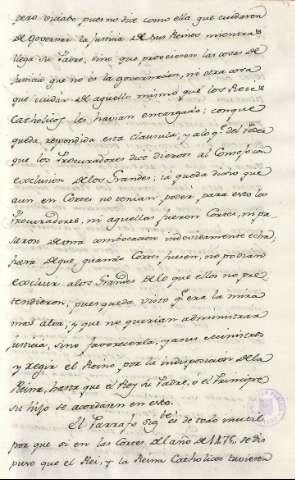 pero viciado, pues no dice como ella que cuidaron
de Governar la Justicia de sus Reinos mientras
llega su Padre, sino que proveieron las cosas de
Justicia que no es la governacion, ni otra cosa
que cuidar de aquello mismo que los Reies
Catholicos les havian encargado; con que
queda respondida esta clausula; y a lo q.e del Poder
que los Procuradores dice dieron al Consejo con
exclusion de los Grandes; ia queda dicho que
aun en Cortes no tenian poder para eso los
Procuradores, ni aquellas fueron Cortes, ni pa
saron de una combocacion indevidamente echa;
fuera de que, quando Cortes fuesen, no podian
excluir a los Grandes de lo que ellos no pre
tendieron, pues queda visto q.e era la mira
mas alta, y que no querian administrar la
Justicia, sino favorecerla, y a sus ministros
y regir el Reino, por la indisposicion de la
Reina, hasta que el Rey su Padre, ó el Principe
su hijo se acordasen en esto.
El Parrafo sig.te es de todo inutil
por que si en las Cortes del año de 1476, se dis
puso que el Rei, y la Reina Catholicos tuviesen